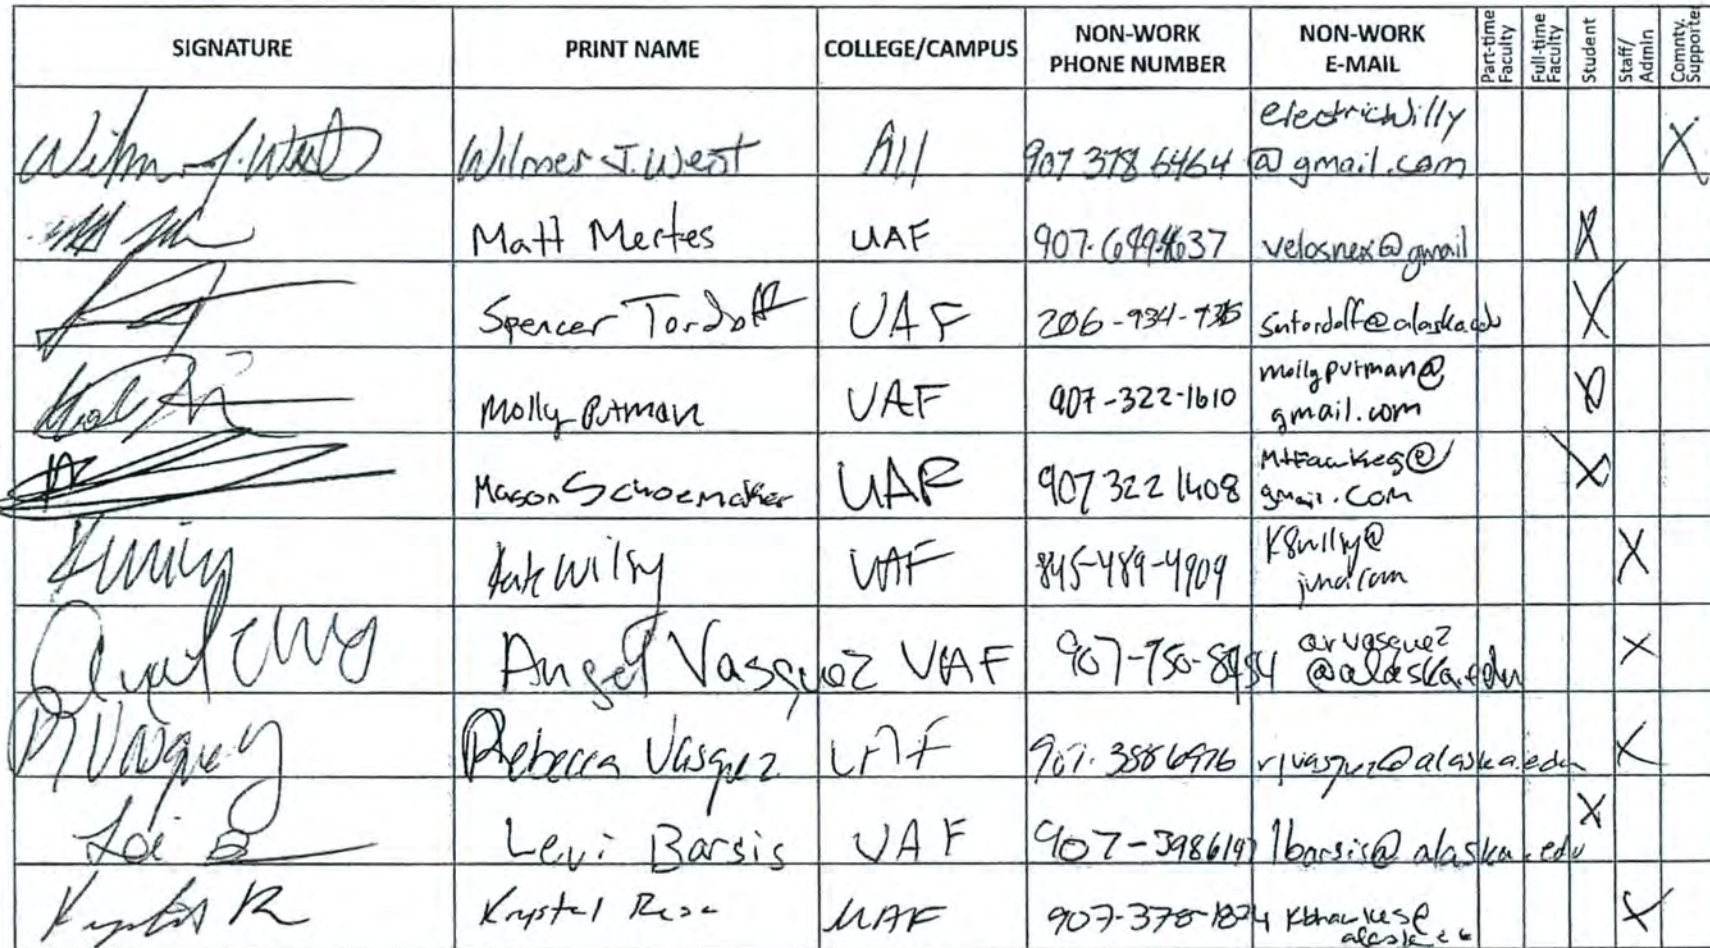 SIGNATURE PRINT NAME COLLEGE/CAMPUS NON-WORK PHONE NUMBER NON-WORK E-MAIL Part-time Faculty Full-time Faculty Student Staff/ Admin Commty. Supporter
Wilmer J. West All 907 378 6464 electricwilly
@gmail.com X
Matt Mertes UAF velosnex@gmail X
Spencer Tordoff UAF 206-934- sntordoff@alaska.edu X
Molly Putman UAF 907-322-1610 mollyputman@
gmail.com X
Mason Schoemaker UAF 907 322 1408
gmail.com X
Kate UAF 845-489-4909 X
Angel Vasquez UAF 907-750- arvasquez
@alaska.edu X
R Vasquez Rebecca Vasquez UAF rjvasquez@alaska.edu X
Levi Barsis UAF 907-3986197 lbarsis@alaska.edu X
Krystal UAF X